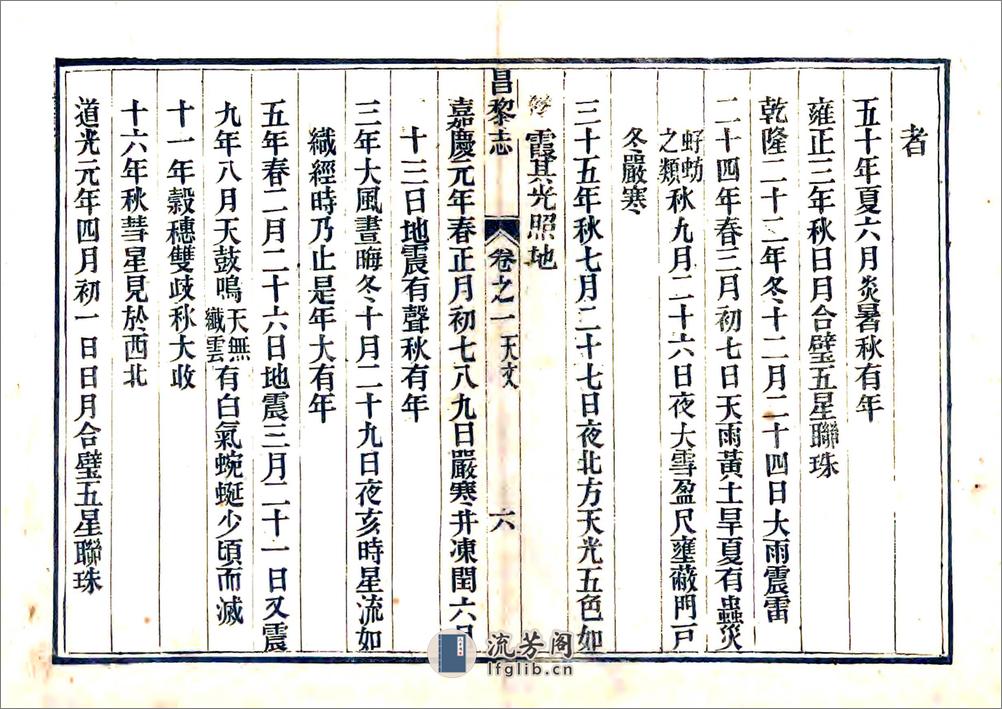 者
五十年夏六月炎暑秋有年
雍正三年秋日月合璧五星聯珠
乾隆二十二年冬十二月二十四日大雨震雷
二十四年春三月初七日天雨黃土旱夏有蟲災
虸蚄
之類
秋九月二十六日夜大雪盈尺壅蔽門戸
冬嚴寒
三十五年秋七月二十七日夜北方天光五色如
霞其光照地
昌黎志
卷之一
天文
六
嘉慶元年春正月初七八九日嚴寒井凍閏六月
十三日地震有聲秋有年
三年大風晝晦冬十月二十九日夜亥時星流如
織經時乃止是年大有年
五年春二月二十六日地震三月二十一日又震
九年八月天鼓鳴
天無
纖雲
有白氣蜿蜒少頃而滅
十一年穀穗雙歧秋大收
十六年秋彗星見於西北
道光元年四月初一日日月合璧五星聯珠
流芳阁
lfglib.cn